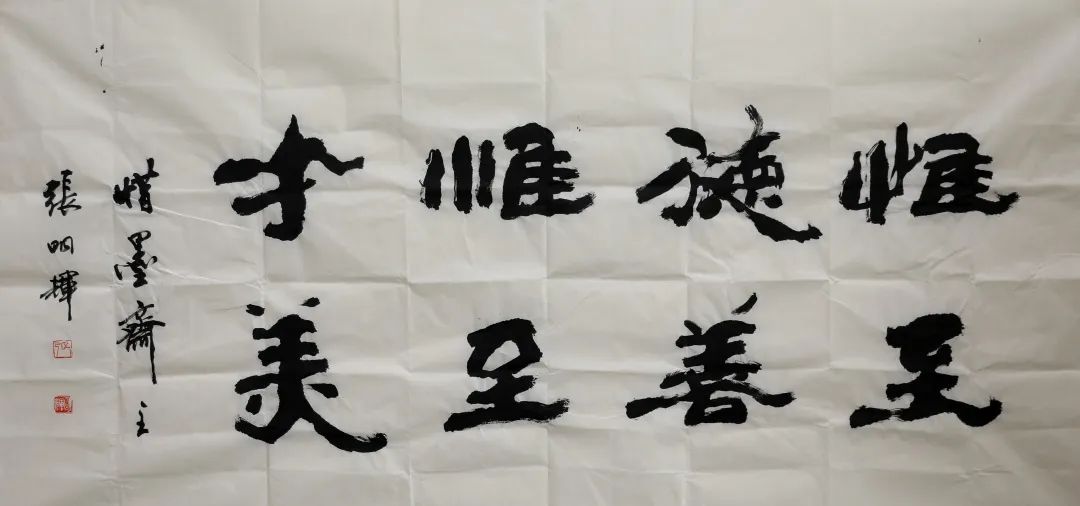 惟德惟才
至善至美
惜墨齋主
張明揮